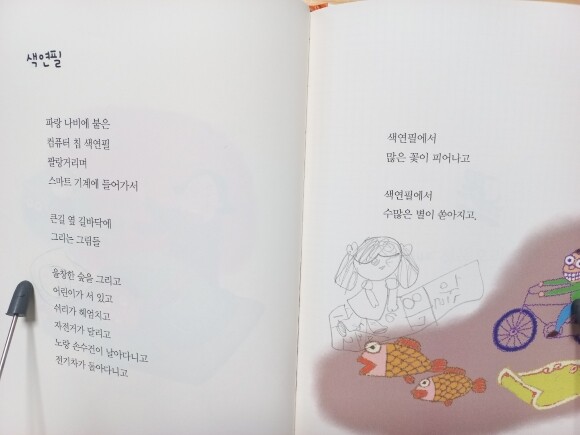 색연필
파랑 나비에 붙은
컴퓨터 칩 색연필
팔랑거리며
스마트 기계에 들어가서
큰길 옆 길바닥에
그리는 그림들
울창한 숲을 그리고
어린이가 서 있고
쉬리가 헤엄치고
자전거가 달리고
노랑 손수건이 날아다니고
전기차가 돌아다니고
색연필에서
많은 꽃이 피어나고
색연필에서
수많은 별이 쏟아지고.